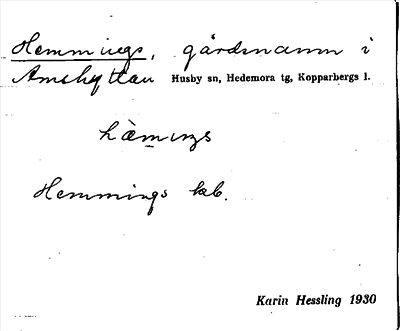 Hemmings, gårdsnamn i
Amshyttan Husby sn, Hedemora tg, Kopparbergs l.
hæ̀mıŋs
Hemmings kb.
Karin Hessling 1930